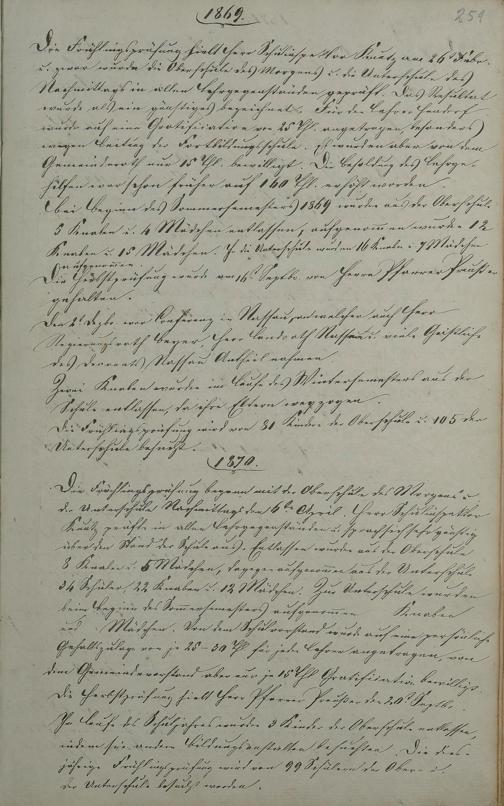 1869.
251
Die Frühlingsprüfung hielt Herr Schulinspektor Knutz am 26t Febr.
u. zwar wurde die Oberschule des Morgens u. die Unterschule des
Nachmittags in allen Lehrgegenständen geprüft. Das Resultat
wurde als ein günstiges bezeichnet. Für die Lehrer
wurde auf eine Gratification von 25 Thl. angetragen, besonders
wegen Leitung der Fortbildungsschule. Es wurden aber von dem
Gemeinderath nur 15 Thl. bewilligt. Die Besoldung des Lehrge-
hilfen war schon früher auf 160 Thl. erhöht worden.
Bei Beginn des Sommersemesters 1869 wurden aus der Oberschule
5 Knaben u. 4 Mädchen entlassen, aufgenommen wurden 12
Knaben u. 15 Mädchen. In die Unterschule wurden 16 Knaben u. 7 Mädchen
aufgenommen.
Die Herbstprüfung wurde am 16t Septbr. von Herrn Pfarrer
gehalten.
Den 2t Dezbr. war Konferenz in Nassau, an welcher auch Herr
Regierungsrath Beyer, Herr Landrath Nassau u. viele Geistliche
des Decanats Nassau Antheil nahmen.
Zwei Knaben wurden im Laufe des Wintersemesters aus der
Schule entlassen, da ihre Eltern wegzogen.
Die Frühlingsprüfung wird von 81 Kinder der Oberschule u. 105 der
Unterschule besucht.
1870.
Die Frühlingsprüfung begann mit der Oberschule des Morgens u.
der Unterschule Nachmittags den 6ten April. Herr Schulinspektor
Knutz prüfte in allen Lehrgegenständen u. sprach sich sehr günstig
über den Stand der Schule aus. Entlassen wurden aus der Oberschule
8 Knaben u. 6 Mädchen, dagegen aufgenommen aus der Unterschule
34 Schüler, 22 Knaben u. 12 Mädchen. Zur Unterschule wurden
beim Beginn des Sommersemesters aufgenommen Knaben
und Mädchen. Von dem Schulvorstand wurde auf eine persönliche
Gehaltszulage von je 25-30 Thl. für jede Lehrer angetragen, von
dem Gemeindevorstand aber nur je 15 Thl. Gratification bewilligt.
Die Herbstprüfung hielt Herr Pfarrer den 20t Septbr.
Im Laufe des Schuljahres wurden 3 Kinder der Oberschule entlassen,
indem sie andere Bildungsanstalten besuchten. Die dies-
jährige Frühlingsprüfung wird von 99 Schülern der Ober- u.
der Unterschule besucht werden.